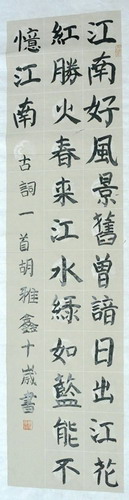 江南好風景舊曾諳日出江花
紅勝火春来江水綠如藍能不
憶江南
古詞一首胡雅鑫十歲書